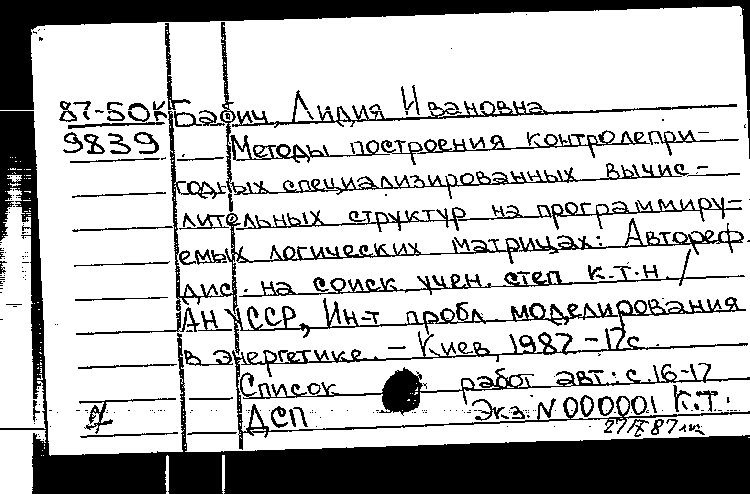 87-50К Бабич, Лидия Ивановна
9839 Методы построения контролепри-
годных специализированных вычис-
лительных структур на программиру-
емых логических матрицах: Автореф.
дис. на соиск. учен. степ к.т.н. /
АН УССР, Ин-т пробл. моделирования
в энергетике. – Киев, 1987 – 17с.
Список работ авт.: с. 16-17
ДСП Экз N 000001 К.Т.